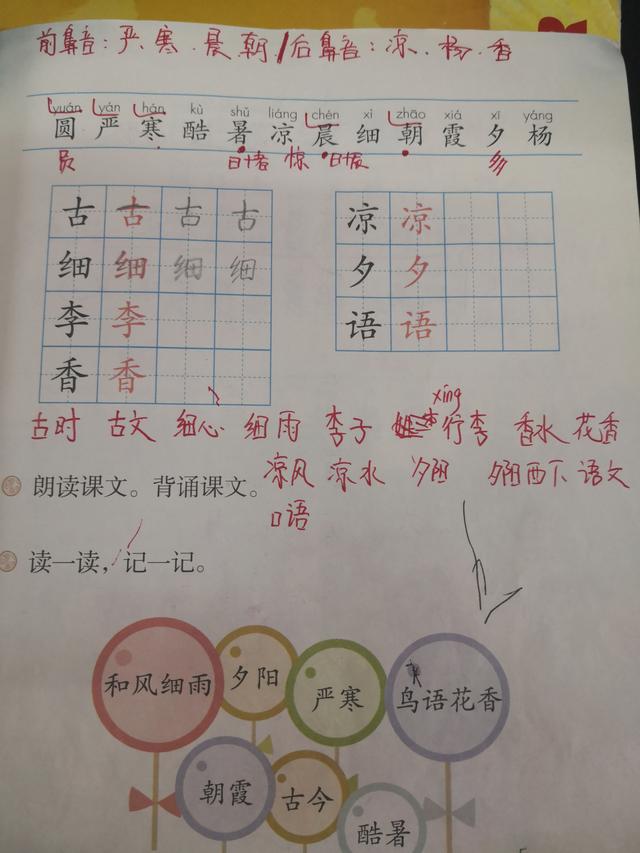 前鼻音：严.寒.晨.朝/后鼻音：凉.杨.香
yuán yán hán kù shǔ liáng chén xì zhāo xiá xī yáng
圆 严 寒 酷 暑 凉 晨 细 朝 霞 夕 杨
员 日+者 惊 日+辰
古 古 古 古
细 细 细 细
李 李
香 香
凉 凉
夕 夕
语 语
xíng
古时 古文 细心 细雨 李子 行李 香水 花香
凉风 凉水 夕阳 夕阳西下 语文
口语
朗读课文。背诵课文。
读一读，记一记。
和风细雨 夕阳 严寒 鸟语花香
朝霞 古今 酷暑